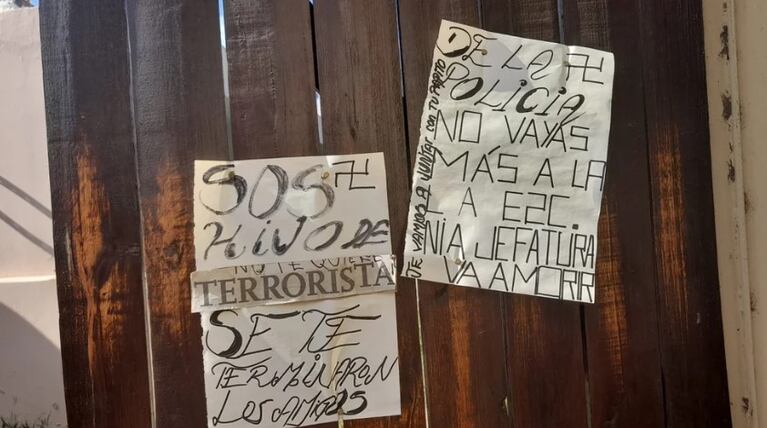 SOS 卐
HIJO DE
NO TE QUIERE
TERRORISTA
SE TE
TERMINARON
LOS AMIGOS
DE LA 卐
POLICIA
NO VAYAS
MÁS A LA
NI A JEFATURA
VA A MORIR
TE VAMOS A JUNTAR CON TU PAPITO